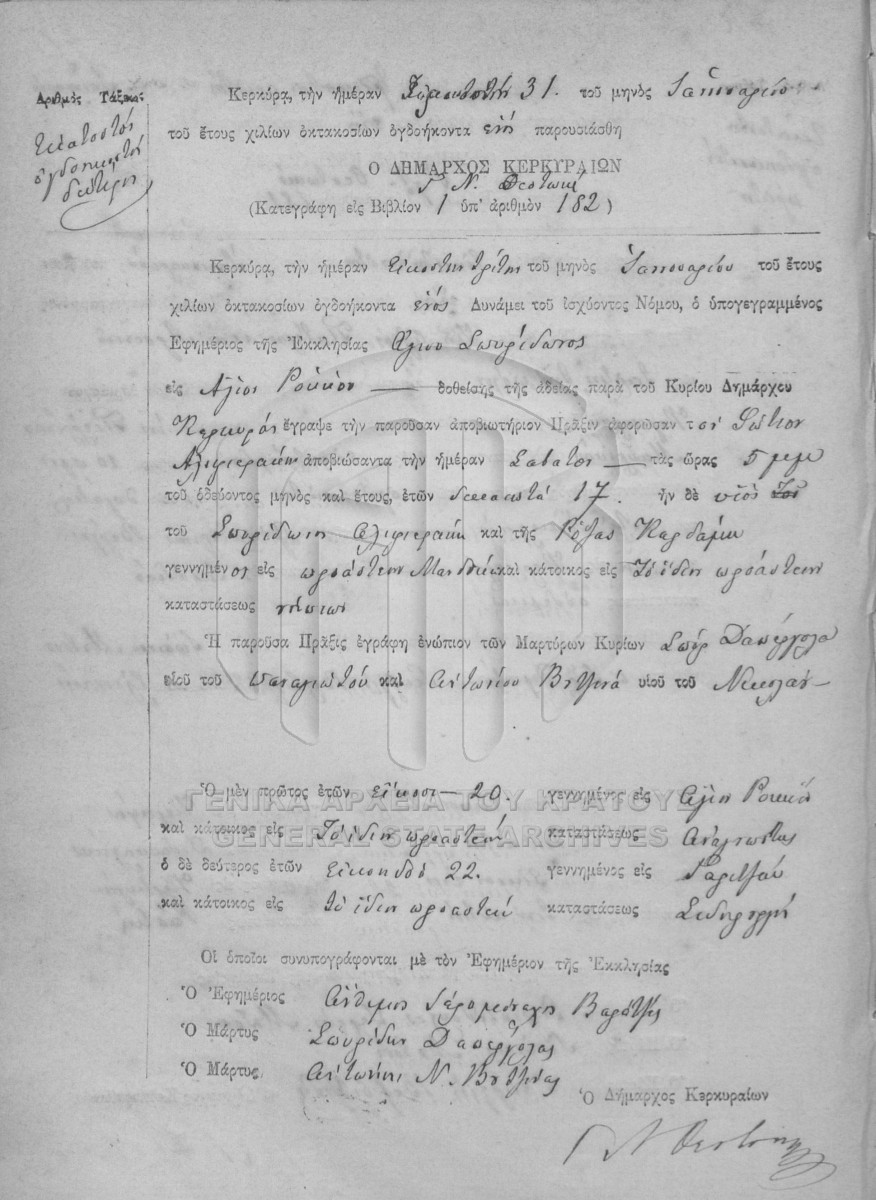 Ἀριθμὸς Τάξεως
Ἑκατοστὴ
ὀγδοηκοστὴ
δευτέρη
Κερκύρᾳ, τὴν ἡμέραν 31. τοῦ μηνὸς Ἰαννουαρίου
τοῦ ἔτους χιλίων ὀκτακοσίων ὀγδοήκοντα ἑνὸς παρουσιάσθη
Ο ΔΗΜΑΡΧΟΣ ΚΕΡΚΥΡΑΙΩΝ
Γ Ν. Θεοτόκη
(Κατεγράφη εἰς Βιβλίον 1 ὑπ' ἀριθμὸν 182)
Κερκύρᾳ, τὴν ἡμέραν Εἰκοστὴν τρίτην τοῦ μηνὸς Ἰαννουαρίου τοῦ ἔτους
χιλίων ὀκτακοσίων ὀγδοήκοντα ἑνὸς Δυνάμει τοῦ ἰσχύοντος Νόμου, ὁ ὑπογεγραμμένος
Ἐφημέριος τῆς Ἐκκλησίας Ἁγίου Σπυρίδωνος
εἰς Ἅγιος Ρόκκον δοθείσης τῆς ἀδείας παρὰ τοῦ Κυρίου Δημάρχου
Κερκυρας ἔγραψε τὴν παροῦσαν ἀποβιωτήριον Πρᾶξιν ἀφορῶσαν τὸν Φώτιον
ἀποβιώσαντα τὴν ἡμέραν Σαβατον τὰς ὥρας 5
τοῦ ὁδεύοντος μηνὸς καὶ ἔτους, ἐτῶν 17. ἦν δὲ υἱὸς
τοῦ Σπυρίδωνος καὶ τῆς Ρόζας Καρδάμη
γεννημένος εἰς προάστειον Μανδούκι καὶ κάτοικος εἰς Τὸ ἴδιον προάστειον
καταστάσεως νήπιον
Ἡ παροῦσα Πρᾶξις ἐγράφη ἐνώπιον τῶν Μαρτύρων Κυρίων Σπυρ Δαπέργολα
υἱοῦ τοῦ Παναγιώτου καὶ Ἀντωνίου υἱοῦ τοῦ Νικολάου
ΓΕΝΙΚΑ ΑΡΧΕΙΑ ΤΟΥ ΚΡΑΤΟΥΣ
GENERAL STATE ARCHIVES
Ὁ μὲν πρῶτος ἐτῶν εἴκοσι 20. γεννημένος εἰς Ἅγιον Ροκκον
καὶ κάτοικος εἰς Τὸ ἴδιον προάστειον καταστάσεως Ἀναγνώστης
ὁ δὲ δεύτερος ἐτῶν εἴκοσι δύο 22. γεννημένος εἰς Γαρίτζαν
καὶ κάτοικος εἰς τὸ ἴδιον προάστειον καταστάσεως Σιδηρουργὸς
Οἱ ὁποῖοι συνυπογράφονται μὲ τὸν Ἐφημέριον τῆς Ἐκκλησίας
Ὁ Ἐφημέριος Ἄνθιμος Ἱερομόναχος
Ὁ Μάρτυς Σπυρίδων Δαπέργολας
Ὁ Μάρτυς Ἀντώνιος Ν.
Ὁ Δήμαρχος Κερκυραίων
Γ Ν Θεοτόκης